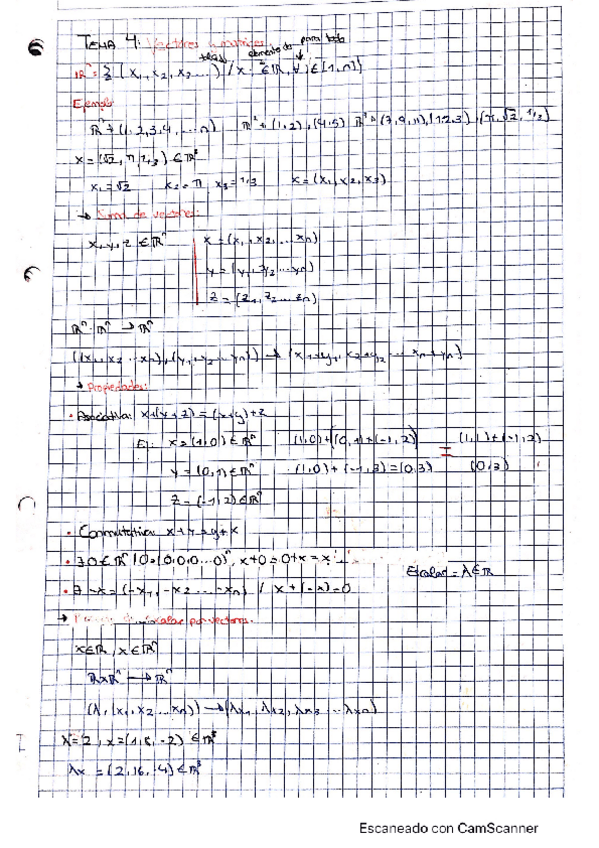 TEMA 4: Vectores y matrices
elemento de para todo
ℝⁿ = { (x₁, x₂, x₂ ...) / xᵢ ∈ ℝ, ∀ i ∈ [1, n] }
Ejemplo
ℝⁿ = (1, 2, 3, 4, ... n) ℝ² = (1, 2), (4, 5) ℝ³ = (7, 9, 11), (1, 2, 3), (π, √2, 1,2)
x = (√2, π, 1,3) ∈ ℝ³
x₁ = √2 x₂ = π x₃ = 1,3 x = (x₁, x₂, x₃)
→ Suma de vectores:
x, y, z ∈ ℝⁿ x = (x₁, x₂, ... xn)
y = (y₁, y₂ ... yn)
z = (z₁, z₂ ... zn)
ℝⁿ · ℝⁿ → ℝⁿ
((x₁, x₂ ... xn), (y₁, y₂ ... yn)) → (x₁+y₁, x₂+y₂ ... xn+yn)
→ Propiedades:
• Asociativa: x+(y+z) = (x+y)+z
Ej: x = (1, 0) ∈ ℝⁿ (1,0)+((0,1)+(-1,2)) = (1,1)+(-1,2)
y = (0, 1) ∈ ℝⁿ (1,0)+(-1,3) = (0,3) (0,3)
z = (-1, 2) ∈ ℝⁿ
• Conmutativa x+y = y+x
• ∃ 0 ∈ ℝⁿ / 0 = (0, 0, 0 ... 0)ⁿ, x+0 = 0+x = x
Escalar = λ ∈ ℝ
• ∃ -x = (-x₁, -x₂ ... -xn) / x+(-x) = 0
→ escalar por vectores.
x ∈ ℝ, x ∈ ℝⁿ
ℝxℝⁿ → ℝⁿ
(λ, (x₁, x₂ ... xn)) → (λx₁, λx₂, λx₃ ... λxn)
λ = 2, x = (1, 8, -2) ∈ ℝ³
λx = (2, 16, -4) ∈ ℝ³
Escaneado con CamScanner